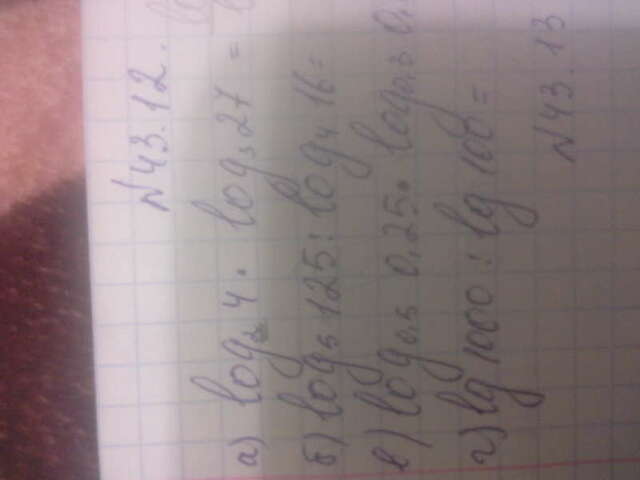 № 43.12.
а) log₂ 4 · log₃ 27 =
б) log₅ 125 : log₄ 16 =
в) log₀,₅ 0,25 · log₀,₃ 0,
г) lg 1000 : lg 100 =
№ 43.13